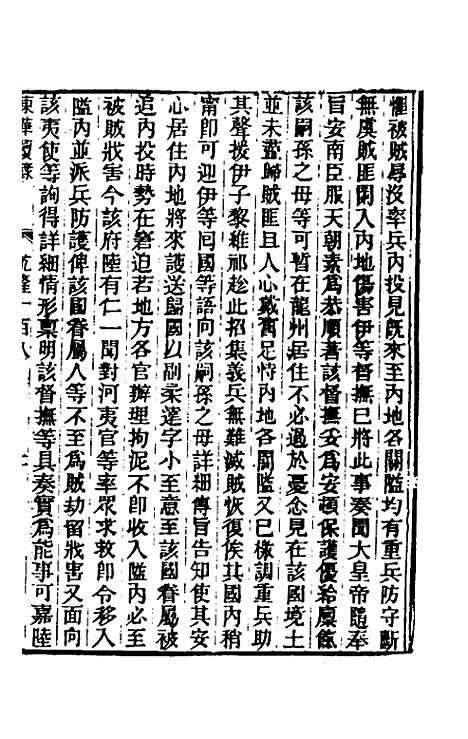 懼被賊辱沒率兵內投見旣來至內地各關隘均有重兵防守斷
無虞賊匪闌入內地傷害伊等督撫已將此事奏聞大皇帝隨奉
旨安南臣服天朝素爲恭順著該督撫妥爲安頓保護優給廩餼
該嗣孫之母等可暫在龍州居住不必過於憂念見在該國境土
並未盡歸賊匪且人心戴舊足恃內地各關隘又已檄調重兵助
其聲援伊子黎維祁趁此招集義兵無難滅賊恢復俟其國內稍
甯卽可迎伊等回國等語向該嗣孫之母詳細傳旨告知使其安
心居住內地將來護送歸國以副柔遠字小至意至該國眷屬被
追內投時勢在窘迫若地方各官辦理拘泥不卽收入隘內必至
被賊戕害今該府陸有仁一聞對河夷官等率眾求救卽令移入
隘內並派兵防護俾該國眷屬人等不至爲賊劫留戕害又面向
該夷使等詢得詳細情形稟明該督撫等具奏實爲能事可嘉陸
東華續錄 乾隆一百八